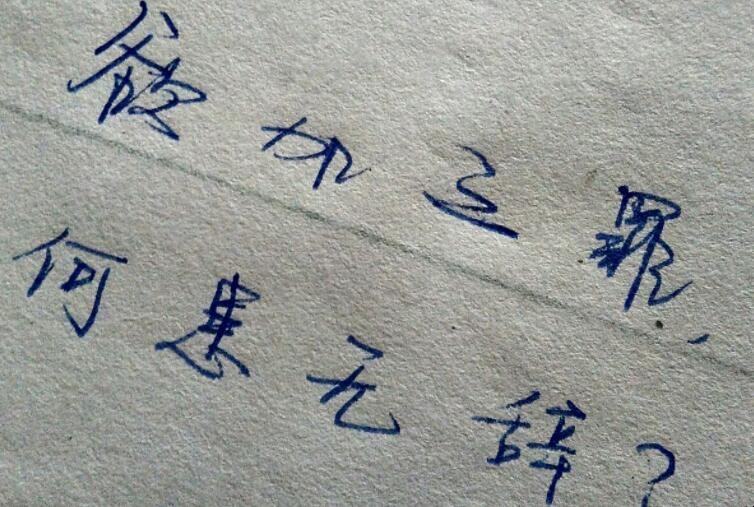 欲加之罪，
何患无辞？